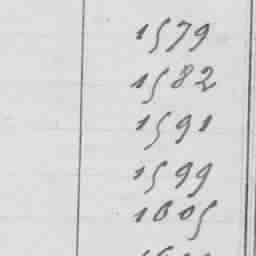 1579
1582
1591
1599
1605